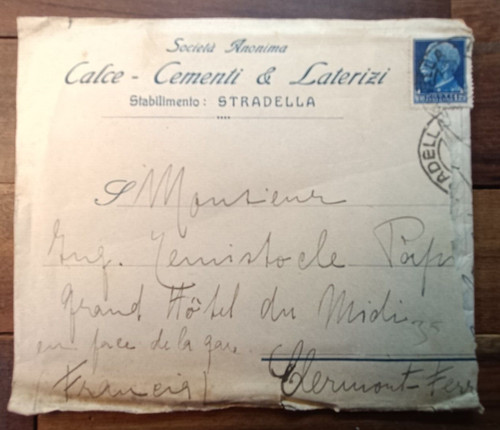 Società Anonima
Calce - Cementi & Laterizi
Stabilimento: STRADELLA
ADELL
Monsieur
Ing. Temistocle
Grand Hôtel du Midi
en face de la gare
(Francia) Clermont-Ferr